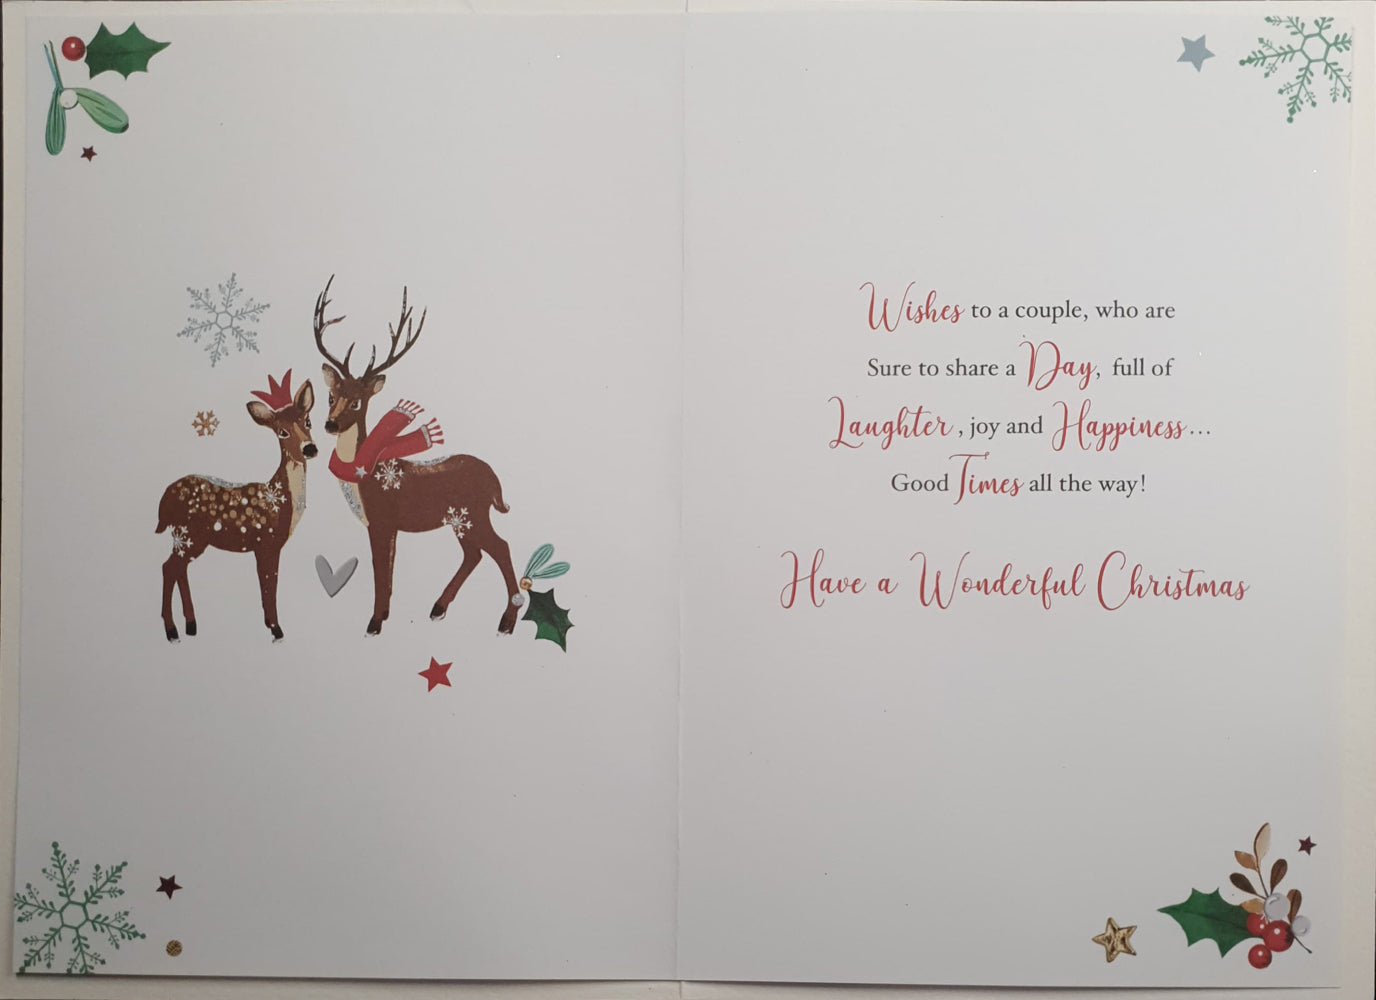 Wishes to a couple, who are
Sure to share a Day, full of
Laughter, joy and Happiness...
Good Times all the way!
Have a Wonderful Christmas